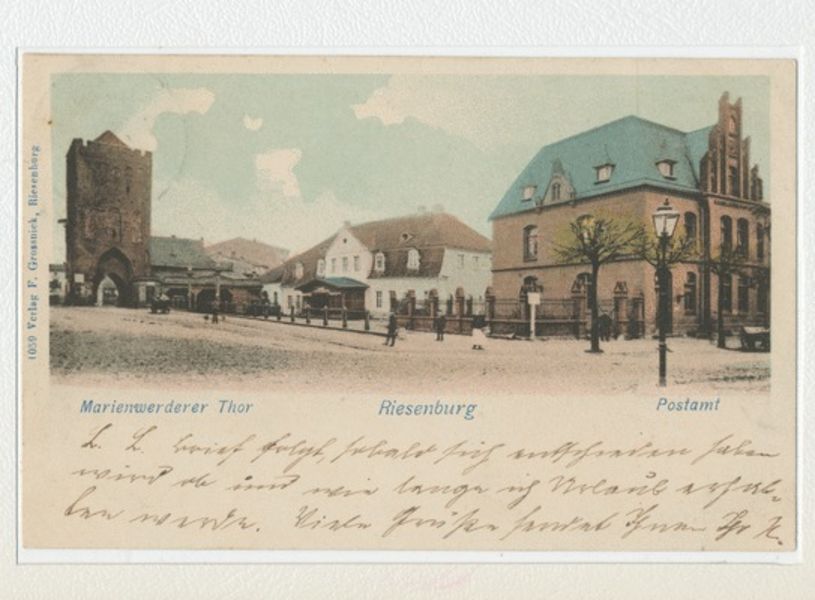 1059 Verlag F. Grossnick, Riesenburg
Marienwerderer Thor
Riesenburg
Postamt
L. L. brief folgt, sobald sich entschieden haben
wird ob und wie lange ich Urlaub erhal-
ten werde. Viele Grüße sendet Ihnen Ihr